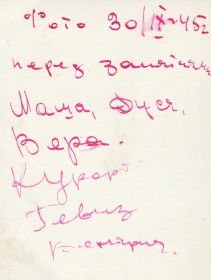 Фото 30/IX-45г
перед занятиями
Маша, Дуся,
Вера.
Курорт
Гевиз